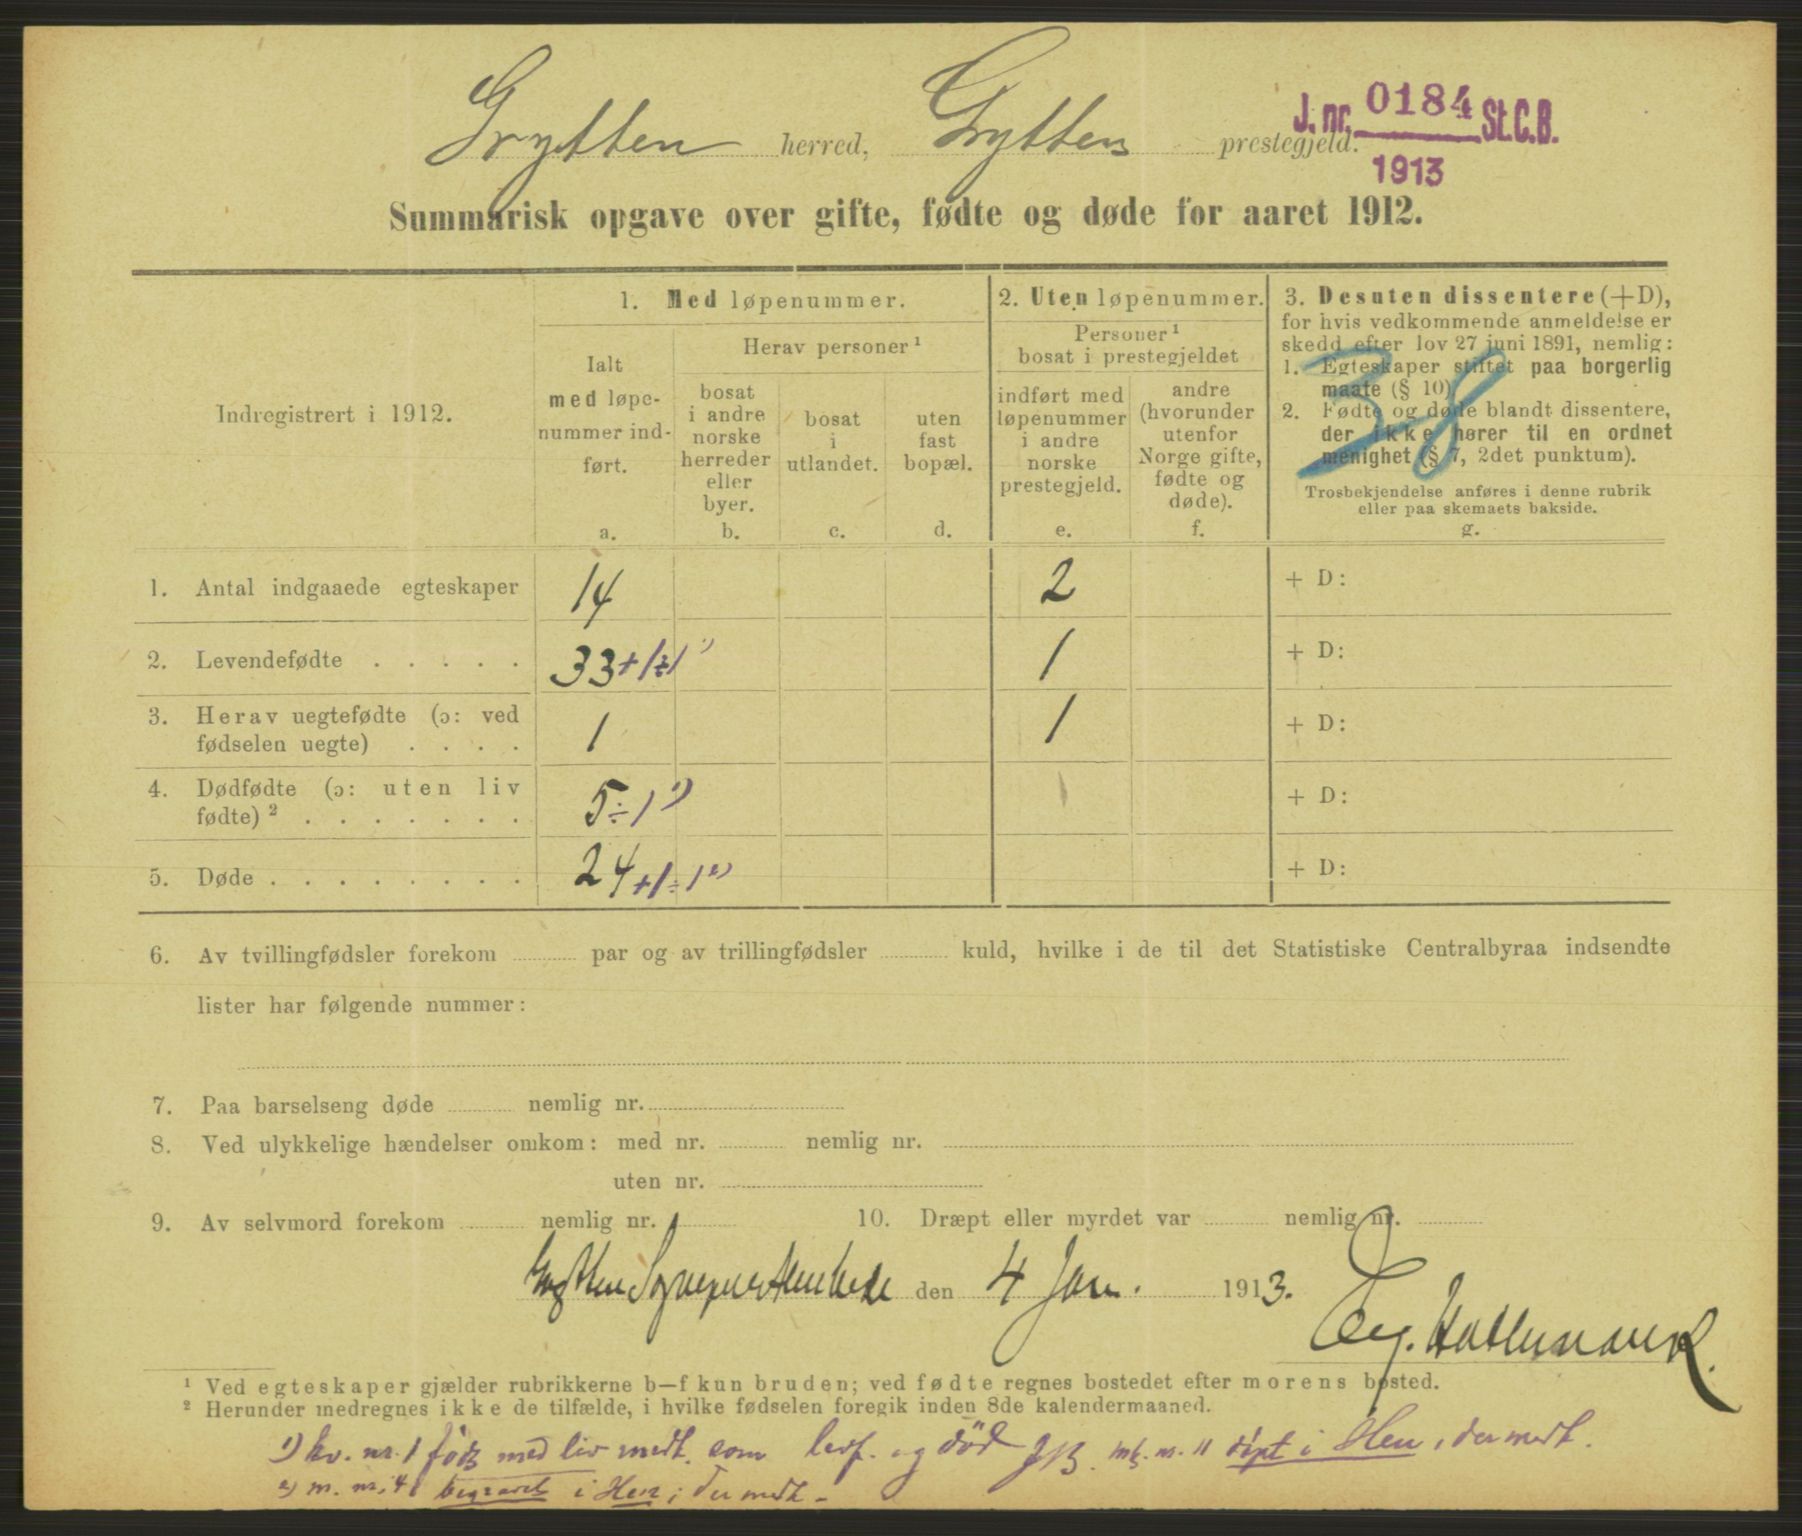 Grytten herred, Grytten prestegjeld.
J. nr. 0184 St.C.B.
1913
Summarisk opgave over gifte, fødte og døde for aaret 1912.
Indregistrert i 1912.
1. Med løpenummer.
Ialt
med løpe-
nummer ind-
ført.
a.
Herav personer ¹
bosat
i andre
norske
herreder
eller
byer.
b.
bosat
i
utlandet.
c.
uten
fast
bopæl.
d.
2. Uten løpenummer.
Personer ¹
bosat i prestegjeldet
indført med
løpenummer
i andre
norske
prestegjeld.
e.
andre
(hvorunder
utenfor
Norge gifte,
fødte og
døde).
f.
3. Desuten dissentere (+D),
for hvis vedkommende anmeldelse er
skedd efter lov 27 juni 1891, nemlig:
1. Egteskaper stiftet paa borgerlig
maate (§ 10).
2. Fødte og døde blandt dissentere,
der ikke hører til en ordnet
menighet (§ 7, 2det punktum).
Trosbekjendelse anføres i denne rubrik
eller paa skemaets bakside.
g.
38
1. Antal indgaaede egteskaper 14 2 + D:
2. Levendefødte . . . . . 33+1÷1 ¹) 1 + D:
3. Herav uegtefødte (ɔ: ved
fødselen uegte) . . . . 1 1 + D:
4. Dødfødte (ɔ: uten liv
fødte) ² . . . . . . . 5÷1 ¹) + D:
5. Døde . . . . . . . . 24+1÷1 ²) + D:
6. Av tvillingfødsler forekom par og av trillingfødsler kuld, hvilke i de til det Statistiske Centralbyraa indsendte
lister har følgende nummer:
7. Paa barselseng døde nemlig nr.
8. Ved ulykkelige hændelser omkom: med nr. nemlig nr.
uten nr.
9. Av selvmord forekom nemlig nr. 10. Dræpt eller myrdet var nemlig nr.
Grytten Sogneprestembede den 4 Jan. 1913.
¹ Ved egteskaper gjælder rubrikkerne b—f kun bruden; ved fødte regnes bostedet efter morens bosted.
² Herunder medregnes ikke de tilfælde, i hvilke fødselen foregik inden 8de kalendermaaned.
¹) kv. nr. 1 født med liv medt. som levf. og død mk. nr. 11 døpt i Hen, der medt.
²) m. nr. 4 begravet i Hen; der medt.